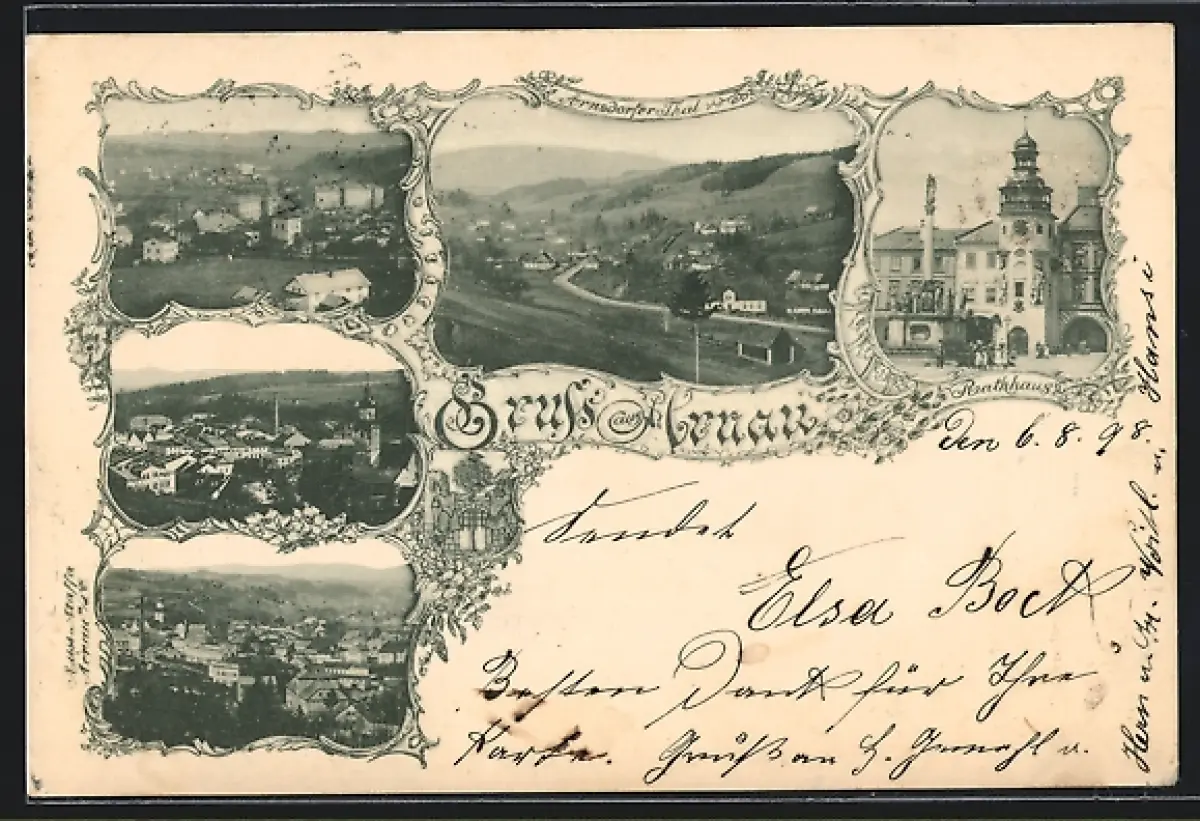 Arnsdorferthal
Rathhaus
Gruss aus Arnau
den 6. 8. 98.
Sendet
Elsa Bock
Besten Dank für Ihre
Karte. Grüße an H. Gemahl u.
Herrn u. Fr. u. Hansi